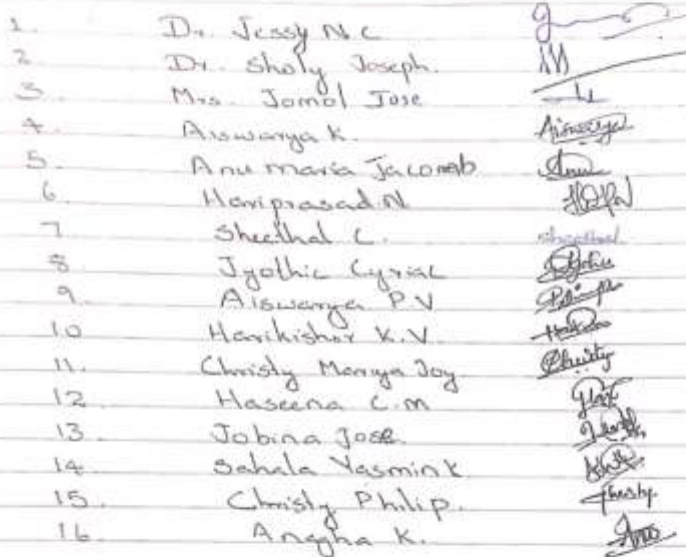 1. Dr. Jessy N C
2. Dr. Sholy Joseph.
3. Mrs. Jomol Jose
4. Aiswarya K. Aiswarya
5. Anu maria Jacomb Anu
6. Hariprasad.N
7 Sheethal C. Sheethal
8 Jyothic Cyriac
9. Aiswarya P.V
10 Harikishor K.V.
11. Christy Mariya Joy Christy
12 Haseena C.m
13. Jobina Jose
14 Sahala Yasmin K
15 Christy Philip. Christy
16 Anagha K.